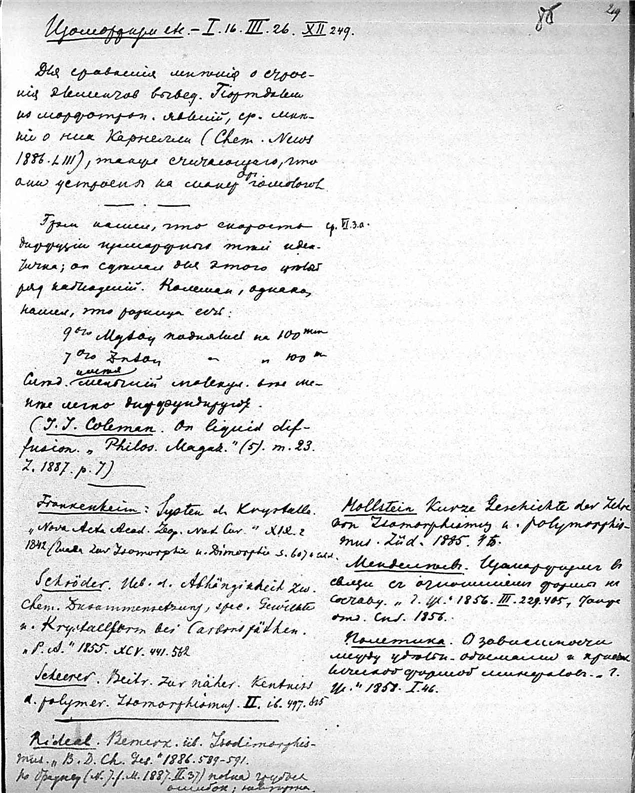 29
Изоморфизм. – I. 16. III. 26. XII 249.
Для сравнения мнения о строе-
нии элементов
по морфотроп. явлений, ср. мне-
ние о них Карнелли (Chem. News
1886. LIII), также считающего, что
они устроены на манер гомологов
Грэм нашел, что скорость ср. VI.3.а.
диффузии изоморфных тел иден-
тична; он сделал для этого целый
ряд наблюдений. Колеман, однако,
нашел, что разница есть:
9 MgSO4 поднялись на 100 mm
7 ZnSO4 " " 100 m
меньший молекул. вес не
легко диффундируют.
(J. J. Coleman. On liquid dif-
fusion. „Philos. Magaz." (5). т. 23.
L. 1887. p. 7)
Frankenheim: System d. Krystalle.
„Nova Acta Acad. Leop. Nat. Cur." XIX. 2
1842 (Zur Isomorphie u. Dimorphie S.
Schröder. Ueb. d. Abhängigkeit zw.
Chem. Zusammensetzung, spec. Gewichte
u. Krystallform bei Carbonspäthen.
„P. A." 1855. XCV. 441. 562
Scheerer. Beitr. zur näher. Kentniss
d. polymer. Isomorphismus. II. 497.
Rideal. Bemerk. üb. Isodimorphis-
mus. „B. D. Ch. Ges." 1886. 589-591.
По (N. J. f. M. 1887. II. 37) полна грубых
ошибок;
Mollstein Kurze Geschichte der Lehre
von Isomorphismus u. polymorphis-
mus. Lüd. 1885.
Менделеев. Изоморфизм в
связи с отношением формы к
составу. „Г. Ж." 1856. III. 229. 405, также
отд. Спб. 1856.
Полетика. О зависимости
между удельн. объемами и кристал
лической формой минералов. „Г.
Ж." 1850. I. 46.